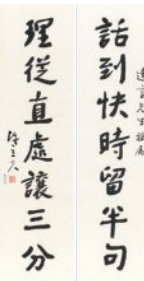 話到快時留半句
理從直處讓三分